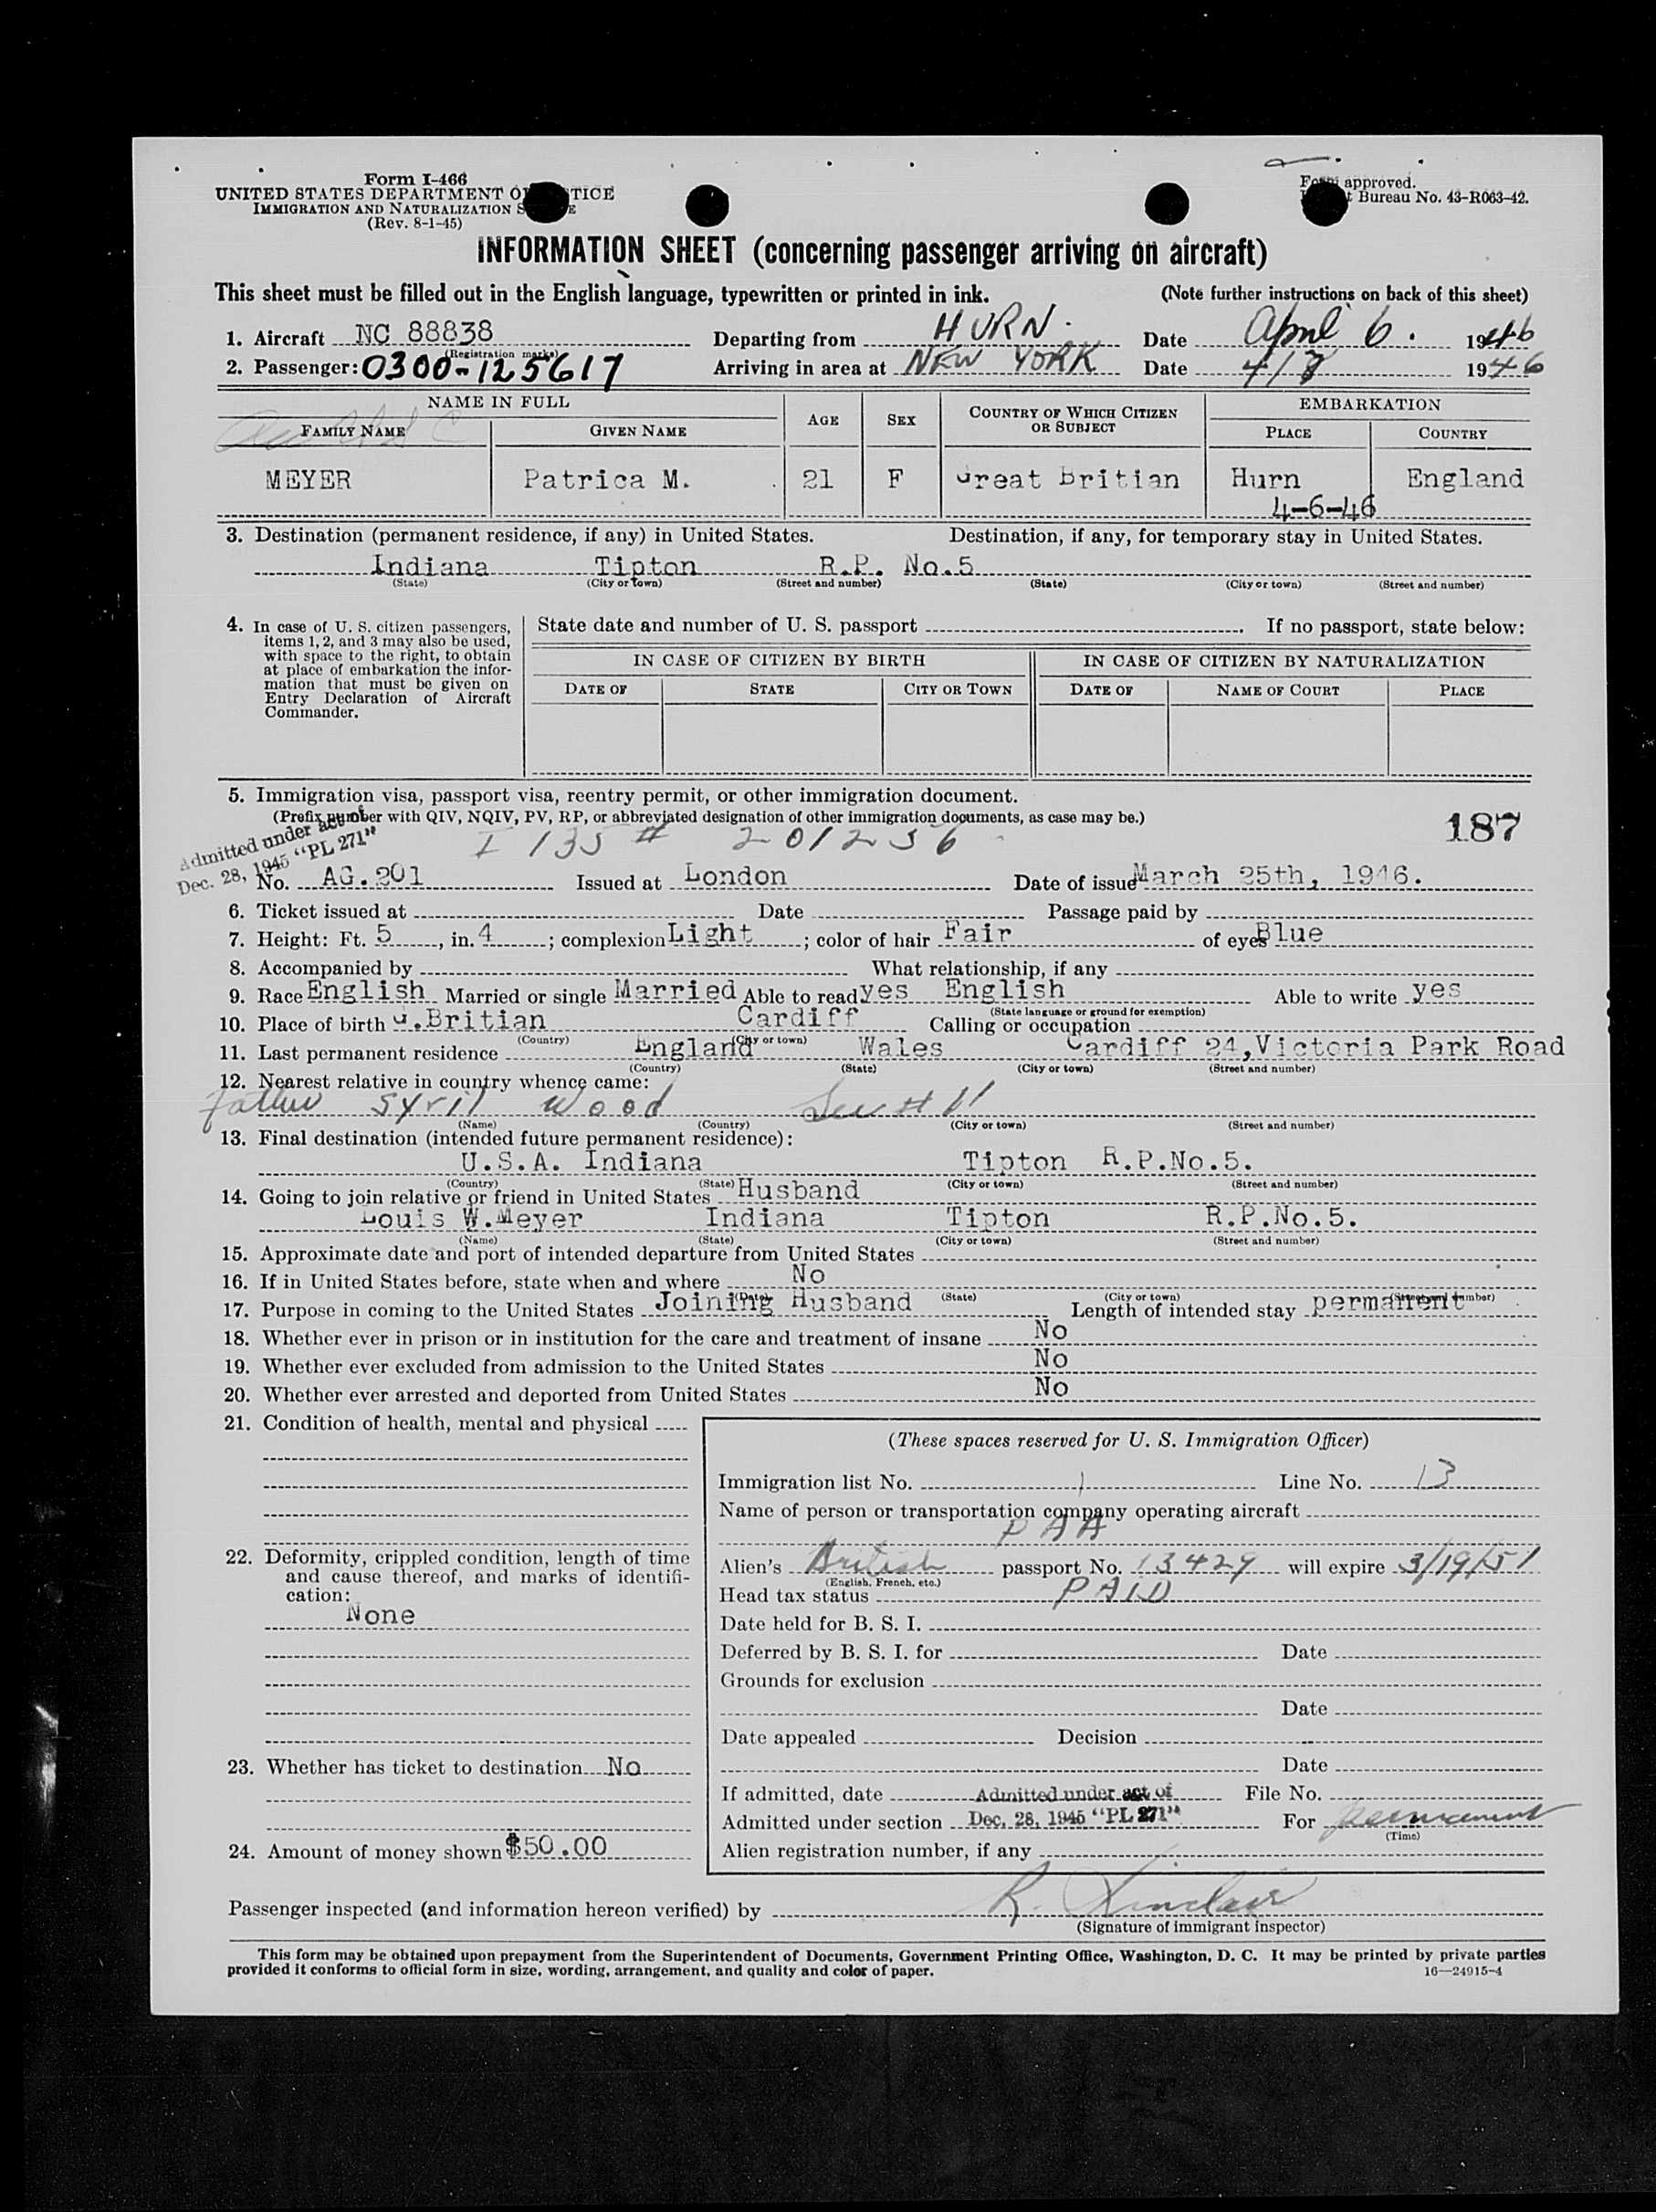 Form I-466
UNITED STATES DEPARTMENT OF JUSTICE
IMMIGRATION AND NATURALIZATION SERVICE
(Rev. 8-1-45)
Form approved.
Bureau No. 43-R063-42.
INFORMATION SHEET (concerning passenger arriving on aircraft)
This sheet must be filled out in the English language, typewritten or printed in ink. (Note further instructions on back of this sheet)
1. Aircraft NC 88838 Departing from HURN. Date April 6. 1946
(Registration marks)
2. Passenger: 0300-125617 Arriving in area at NEW YORK Date 4/7 1946
NAME IN FULL AGE SEX COUNTRY OF WHICH CITIZEN OR SUBJECT EMBARKATION
FAMILY NAME GIVEN NAME PLACE COUNTRY
MEYER Patrica M. 21 F Great Britian Hurn England
4-6-46
3. Destination (permanent residence, if any) in United States. Destination, if any, for temporary stay in United States.
Indiana Tipton R.P. No.5
(State) (City or town) (Street and number) (State) (City or town) (Street and number)
4. In case of U. S. citizen passengers, items 1, 2, and 3 may also be used, with space to the right, to obtain at place of embarkation the information that must be given on Entry Declaration of Aircraft Commander.
State date and number of U. S. passport . If no passport, state below:
IN CASE OF CITIZEN BY BIRTH IN CASE OF CITIZEN BY NATURALIZATION
DATE OF STATE CITY OR TOWN DATE OF NAME OF COURT PLACE
5. Immigration visa, passport visa, reentry permit, or other immigration document.
(Prefix number with QIV, NQIV, PV, RP, or abbreviated designation of other immigration documents, as case may be.)
Admitted under act of
Dec. 28, 1945 "PL 271"
I 135 # 201256
187
No. AG.201 Issued at London Date of issue March 25th, 1946.
6. Ticket issued at Date Passage paid by
7. Height: Ft. 5, in. 4; complexion Light; color of hair Fair of eyes Blue
8. Accompanied by What relationship, if any
9. Race English Married or single Married Able to read yes English Able to write yes
(State language or ground for exemption)
10. Place of birth G.Britian Cardiff Calling or occupation
(Country) (City or town)
11. Last permanent residence England Wales Cardiff 24,Victoria Park Road
(Country) (State) (City or town) (Street and number)
12. Nearest relative in country whence came:
father Syril Wood See # 11
(Name) (Country) (City or town) (Street and number)
13. Final destination (intended future permanent residence):
U.S.A. Indiana Tipton R.P.No.5.
(Country) (State) (City or town) (Street and number)
14. Going to join relative or friend in United States Husband
Louis W.Meyer Indiana Tipton R.P.No.5.
(Name) (State) (City or town) (Street and number)
15. Approximate date and port of intended departure from United States
16. If in United States before, state when and where No
(Date) (State) (City or town) (Street and number)
17. Purpose in coming to the United States Joining Husband Length of intended stay permanent
18. Whether ever in prison or in institution for the care and treatment of insane No
19. Whether ever excluded from admission to the United States No
20. Whether ever arrested and deported from United States No
21. Condition of health, mental and physical
22. Deformity, crippled condition, length of time and cause thereof, and marks of identification:
None
23. Whether has ticket to destination No
24. Amount of money shown $50.00
(These spaces reserved for U. S. Immigration Officer)
Immigration list No. 1 Line No. 13
Name of person or transportation company operating aircraft
PAA
Alien's British passport No. 13429 will expire 3/19/51
(English, French, etc.)
Head tax status PAID
Date held for B. S. I.
Deferred by B. S. I. for Date
Grounds for exclusion
Date
Date appealed Decision
Date
If admitted, date Admitted under act of File No.
Admitted under section Dec. 28, 1945 "PL 271" For permanent
(Time)
Alien registration number, if any
Passenger inspected (and information hereon verified) by R. Sinclair
(Signature of immigrant inspector)
This form may be obtained upon prepayment from the Superintendent of Documents, Government Printing Office, Washington, D. C. It may be printed by private parties
provided it conforms to official form in size, wording, arrangement, and quality and color of paper.
16—24915-4